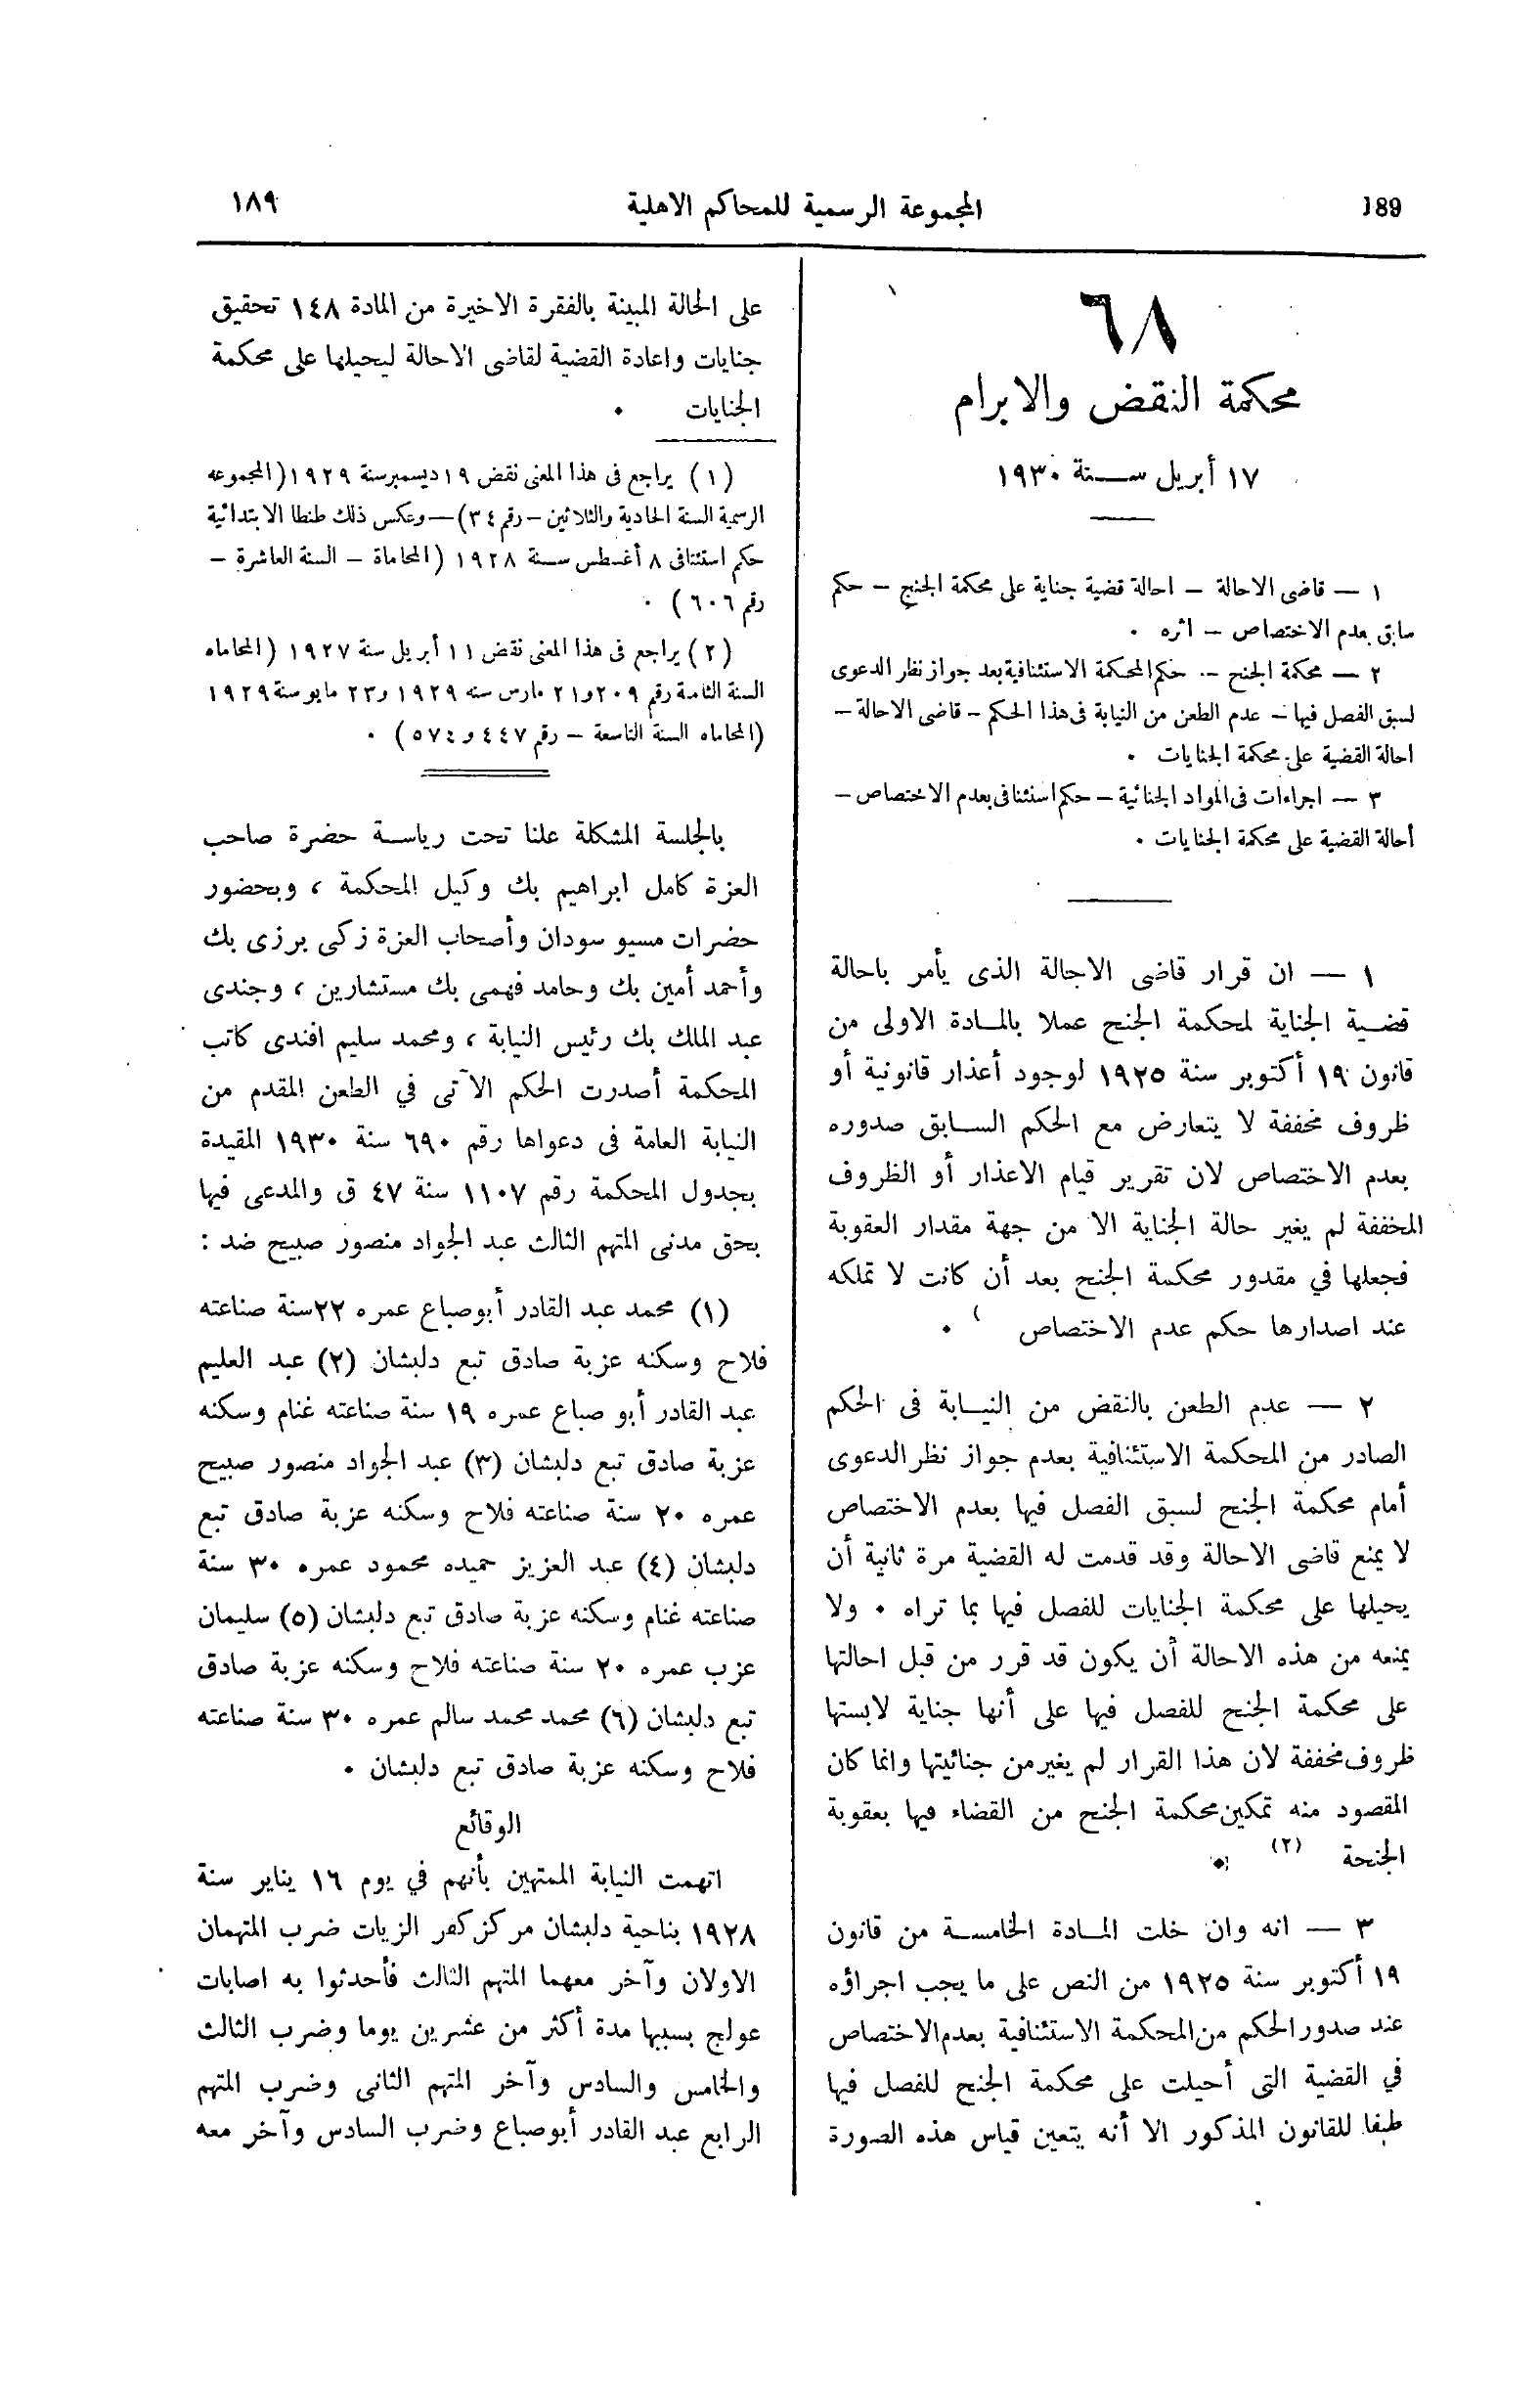 189
المجموعة الرسمية للمحاكم الاهلية
١٨٩
٦٨
محكمة النقض والابرام
١٧ أبريل سنة ١٩٣٠
١ — قاضى الاحالة – احالة قضية جناية على محكمة الجنح – حكم
سابق بعدم الاختصاص – اثره .
٢ — محكمة الجنح – حكم المحكمة الاستئنافية بعد جواز نظر الدعوى
لسبق الفصل فيها – عدم الطعن من النيابة فى هذا الحكم – قاضى الاحالة –
احالة القضية على محكمة الجنايات .
٣ — اجراءات فى المواد الجنائية – حكم استئنافى بعدم الاختصاص –
أحالة القضية على محكمة الجنايات .
١ — ان قرار قاضى الاحالة الذى يأمر باحالة
قضية الجناية لمحكمة الجنح عملا بالمادة الاولى من
قانون ١٩ أكتوبر سنة ١٩٢٥ لوجود أعذار قانونية أو
ظروف مخففة لا يتعارض مع الحكم السابق صدوره
بعدم الاختصاص لان تقرير قيام الاعذار أو الظروف
المخففة لم يغير حالة الجناية الا من جهة مقدار العقوبة
فجعلها في مقدور محكمة الجنح بعد أن كانت لا تملكه
عند اصدارها حكم عدم الاختصاص .
٢ — عدم الطعن بالنقض من النيابة فى الحكم
الصادر من المحكمة الاستئنافية بعدم جواز نظر الدعوى
أمام محكمة الجنح لسبق الفصل فيها بعدم الاختصاص
لا يمنع قاضى الاحالة وقد قدمت له القضية مرة ثانية أن
يحيلها على محكمة الجنايات للفصل فيها بما تراه . ولا
يمنعه من هذه الاحالة أن يكون قد قرر من قبل احالتها
على محكمة الجنح للفصل فيها على أنها جناية لابستها
ظروف مخففة لان هذا القرار لم يغير من جنائيتها وانما كان
المقصود منه تمكين محكمة الجنح من القضاء فيها بعقوبة
الجنحة (٢) .
٣ — انه وان خلت المادة الخامسة من قانون
١٩ أكتوبر سنة ١٩٢٥ من النص على ما يجب اجراؤه
عند صدور الحكم من المحكمة الاستئنافية بعدم الاختصاص
في القضية التى أحيلت على محكمة الجنح للفصل فيها
طبقا للقانون المذكور الا أنه يتعين قياس هذه الصورة
على الحالة المبينة بالفقرة الاخيرة من المادة ١٤٨ تحقيق
جنايات واعادة القضية لقاضى الاحالة ليحيلها على محكمة
الجنايات .
(١) يراجع فى هذا المعنى نقض ١٩ ديسمبر سنة ١٩٢٩ (المجموعه
الرسمية السنة الحادية والثلاثين – رقم ٣٤) — وعكس ذلك طنطا الابتدائية
حكم استئنافى ٨ أغسطس سنة ١٩٢٨ (المحاماة – السنة العاشرة –
رقم ٦٠٦) .
(٢) يراجع فى هذا المعنى نقض ١١ أبريل سنة ١٩٢٧ (المحاماه
السنة الثامنة رقم ٢٠٩ و٢١ مارس سنه ١٩٢٩ و٢٣ مايو سنة ١٩٢٩
(المحاماه السنة التاسعة – رقم ٤٤٧ و ٥٧٤) .
بالجلسة المشكلة علنا تحت رياسة حضرة صاحب
العزة كامل ابراهيم بك وكيل المحكمة ، وبحضور
حضرات مسيو سودان وأصحاب العزة زكى برزى بك
وأحمد أمين بك وحامد فهمى بك مستشارين ، وجندى
عبد الملك بك رئيس النيابة ، ومحمد سليم افندى كاتب
المحكمة أصدرت الحكم الآتى في الطعن المقدم من
النيابة العامة فى دعواها رقم ٦٩٠ سنة ١٩٣٠ المقيدة
بجدول المحكمة رقم ١١٠٧ سنة ٤٧ ق والمدعى فيها
بحق مدنى المتهم الثالث عبد الجواد منصور صبيح ضد :
(١) محمد عبد القادر أبو صباع عمره ٢٢ سنة صناعته
فلاح وسكنه عزبة صادق تبع دلبشان (٢) عبد العليم
عبد القادر أبو صباع عمره ١٩ سنة صناعته غنام وسكنه
عزبة صادق تبع دلبشان (٣) عبد الجواد منصور صبيح
عمره ٢٠ سنة صناعته فلاح وسكنه عزبة صادق تبع
دلبشان (٤) عبد العزيز حميده محمود عمره ٣٠ سنة
صناعته غنام وسكنه عزبة صادق تبع دلبشان (٥) سليمان
عزب عمره ٢٠ سنة صناعته فلاح وسكنه عزبة صادق
تبع دلبشان (٦) محمد محمد سالم عمره ٣٠ سنة صناعته
فلاح وسكنه عزبة صادق تبع دلبشان .
الوقائع
اتهمت النيابة الممتهين بأنهم في يوم ١٦ يناير سنة
١٩٢٨ بناحية دلبشان مركز كفر الزيات ضرب المتهمان
الاولان وآخر معهما المتهم الثالث فأحدثوا به اصابات
عولج بسببها مدة أكثر من عشرين يوما وضرب الثالث
والخامس والسادس وآخر المتهم الثانى وضرب المتهم
الرابع عبد القادر أبو صباع وضرب السادس وآخر معه